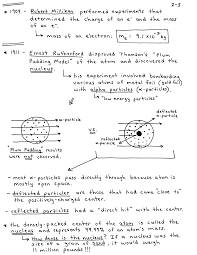 2-5
★ 1909 - Robert Millikan performed experiments that
determined the charge of an e⁻ and the mass
of an e⁻.
↳ mass of an electron: mₑ = 9.1 x 10⁻²⁸ g
★ 1911 - Ernest Rutherford disproved Thomson's "Plum
Pudding Model" of the atom and discovered the
nucleus.
↳ his experiment involved bombarding
various atoms of metal foil (gold foil)
with alpha particles (α-particles).
↳ "low energy particles"
α-particle
deflected
α-particle
v.s.
reflected
α-particle
"Plum Pudding" results
were not observed.
- most α-particles pass directly through because atom is
mostly open space.
- deflected particles are those that had come "close" to
the positively-charged center.
- reflected particles had a "direct hit" with the center.
★ the densely-packed center of the atom is called the
nucleus and represents 99.97% of an atom's mass.
↳ How dense is the nucleus? If a nucleus was the
size of a grain of sand, it would weigh
11 million pounds!!!